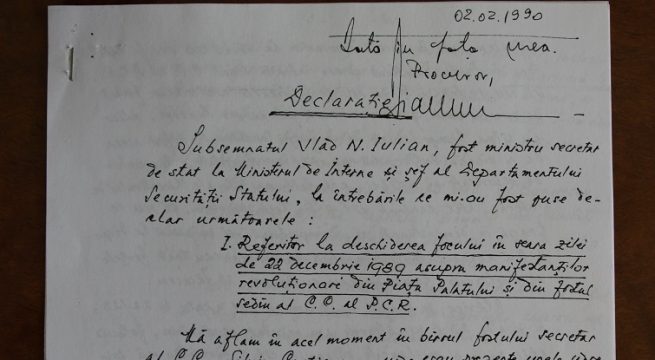 02.02.1990
Dată în fața mea.
Procuror,
Declarație
Subsemnatul Vlad N. Iulian, fost ministru secretar
de stat la Ministerul de Interne și șef al Departamentului
Securității Statului, la întrebările ce mi-au fost puse de-
clar următoarele :
I. Referitor la deschiderea focului în seara zilei
de 22 decembrie 1989 asupra manifestanților
revoluționari din Piața Palatului și din fostul
sediu al C.C. al P.C.R.
Mă aflam în acel moment în biroul fostului secretar
al C.C.